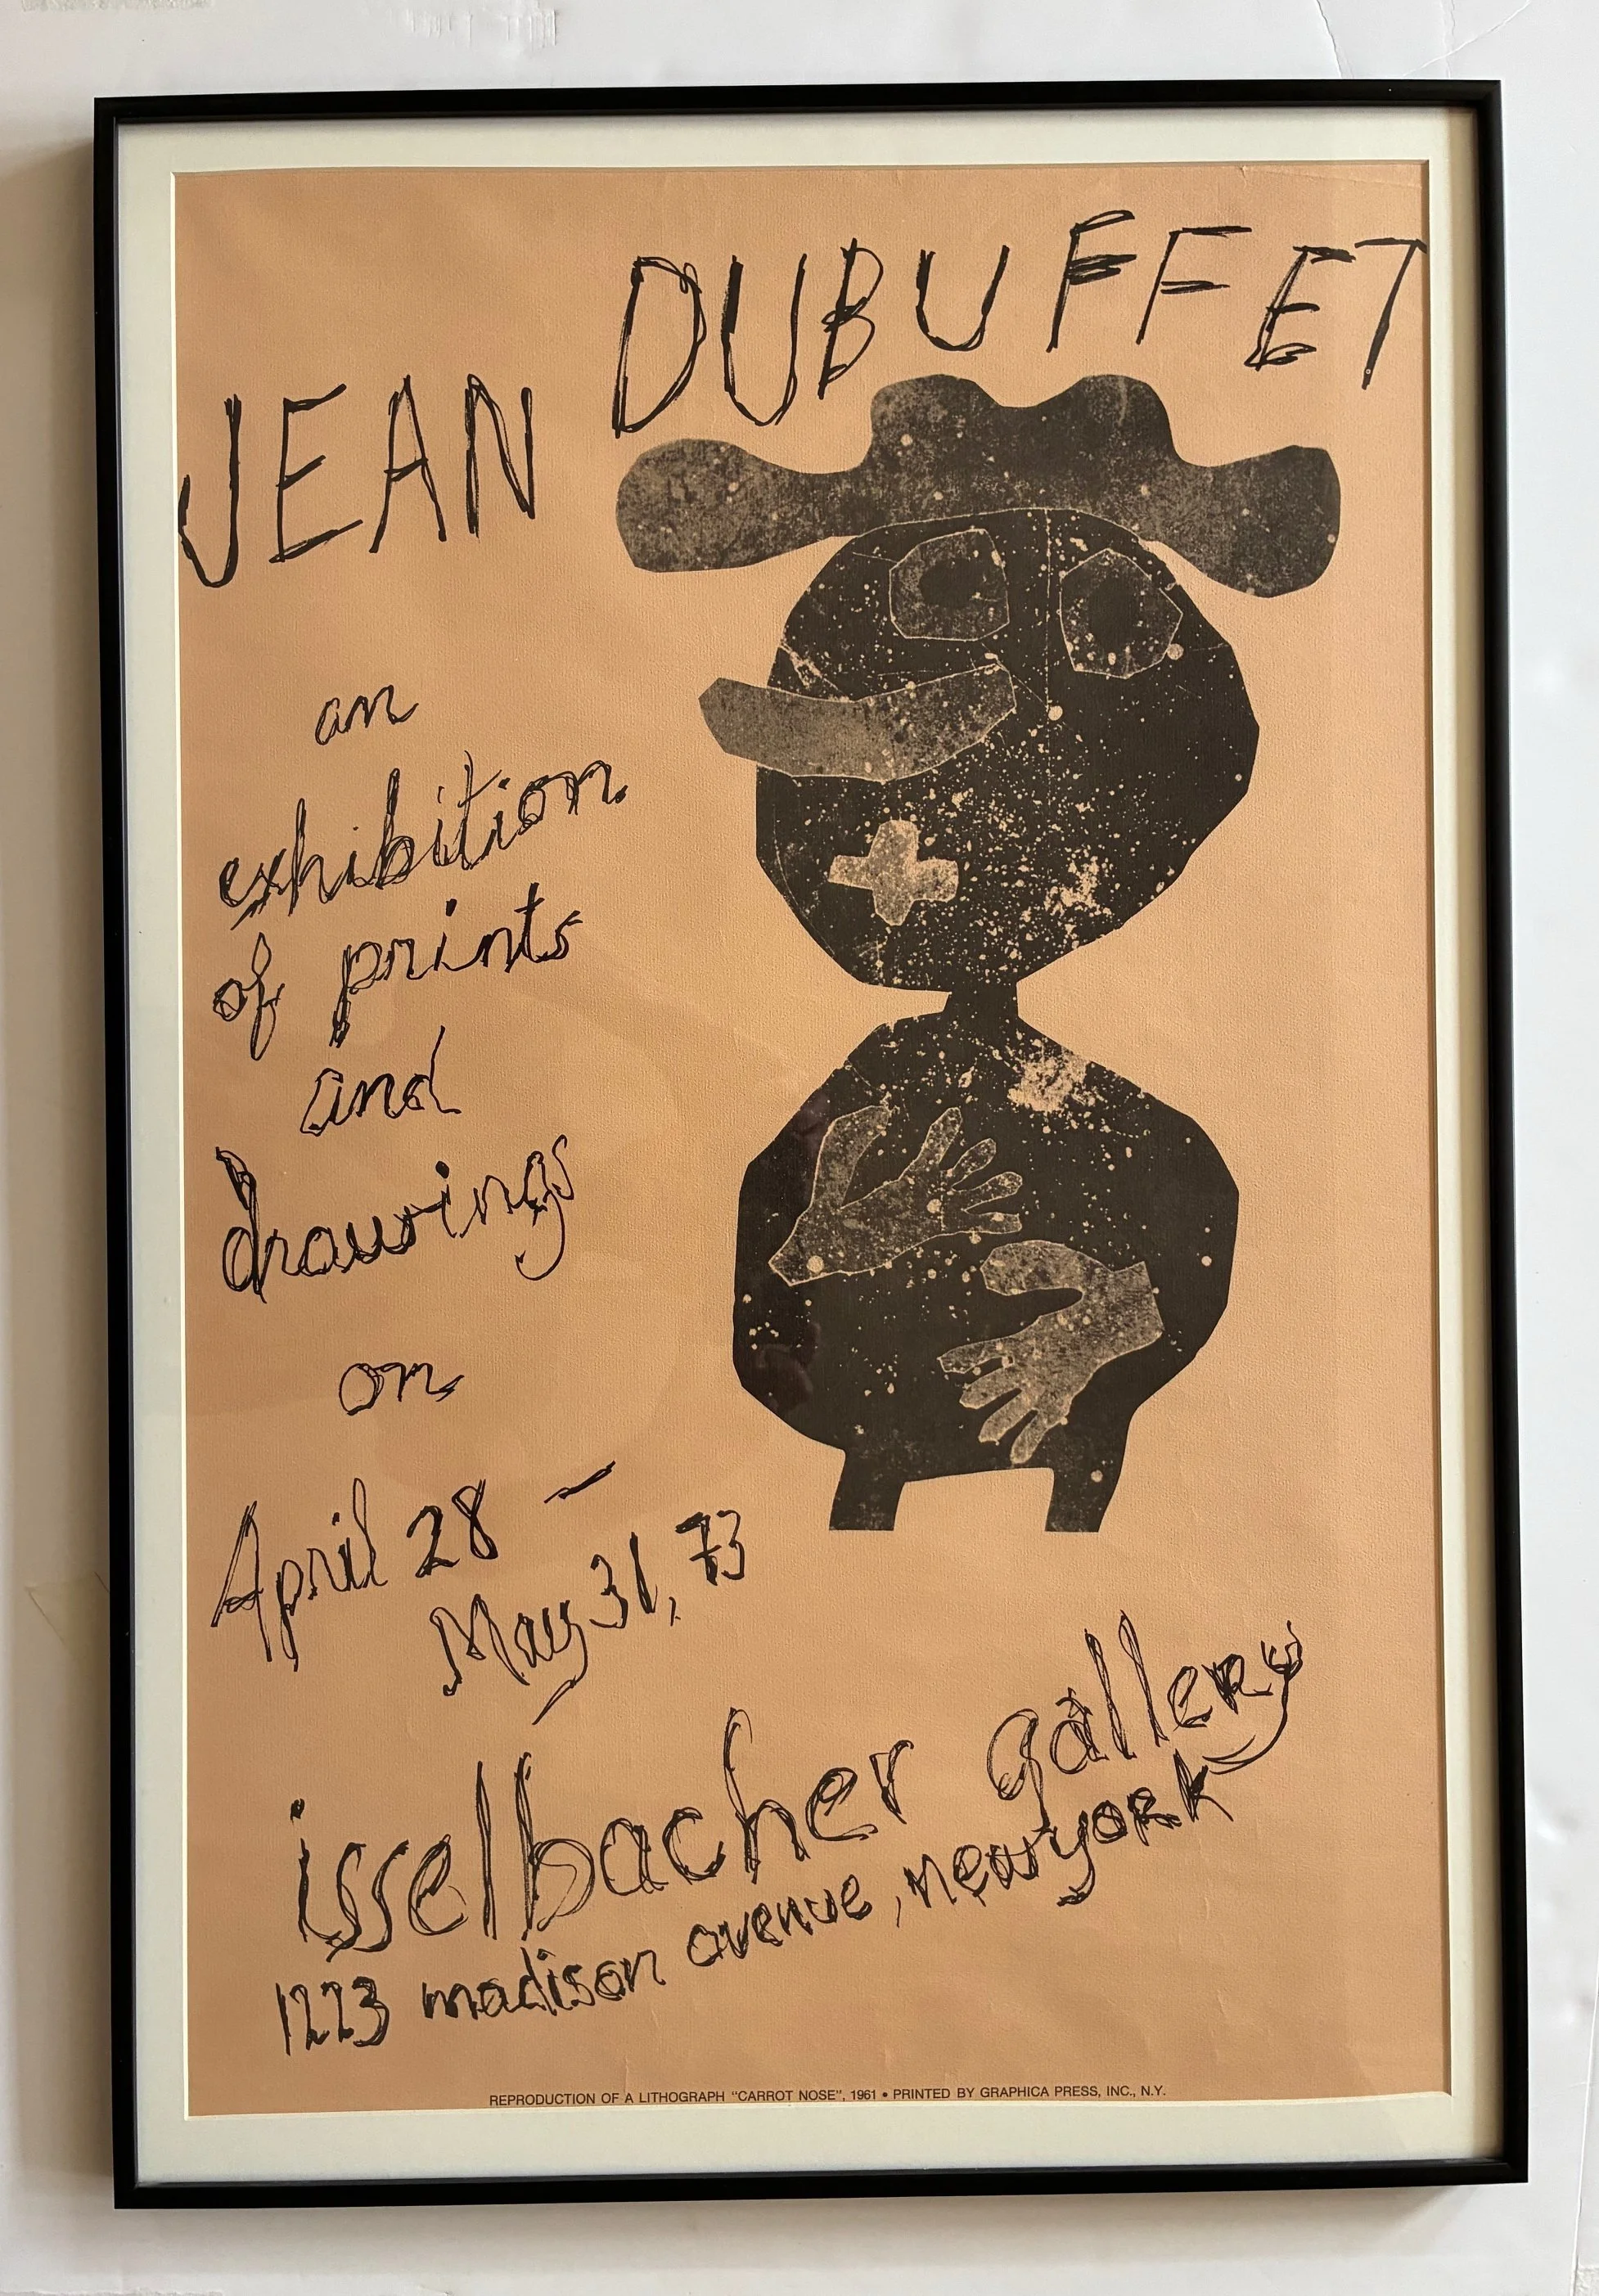 JEAN DUBUFFET
an
exhibition
of prints
and
drawings
on
April 28 –
May 31, 73
isselbacher gallery
1223 madison avenue, new york
REPRODUCTION OF A LITHOGRAPH “CARROT NOSE”, 1961 • PRINTED BY GRAPHICA PRESS, INC., N.Y.